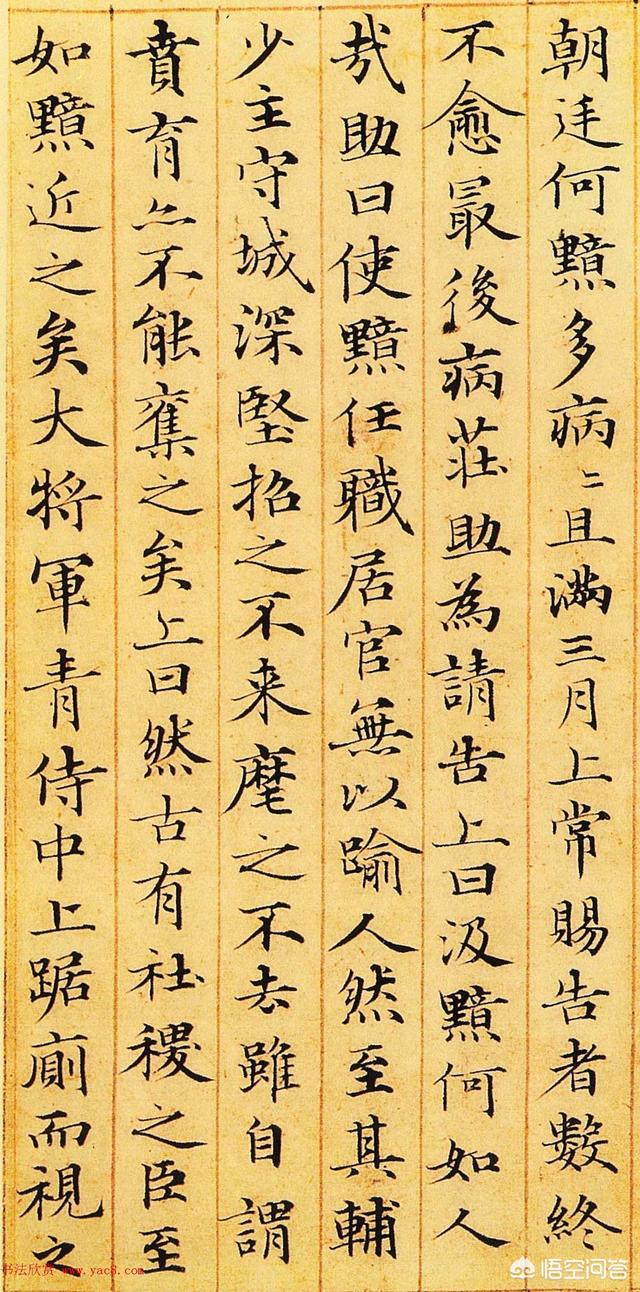 朝廷何黯多病〻且滿三月上常賜告者數終
不愈最後病莊助為請告上曰汲黯何如人
㢤助曰使黯任職居官無以踰人然至其輔
少主守城深堅招之不来麾之不去雖自謂
賁育亦不能奪之矣上曰然古有社稷之臣至
如黯近之矣大將軍青侍中上踞廁而視之
书法欣赏 www.yac8.com
悟空问答